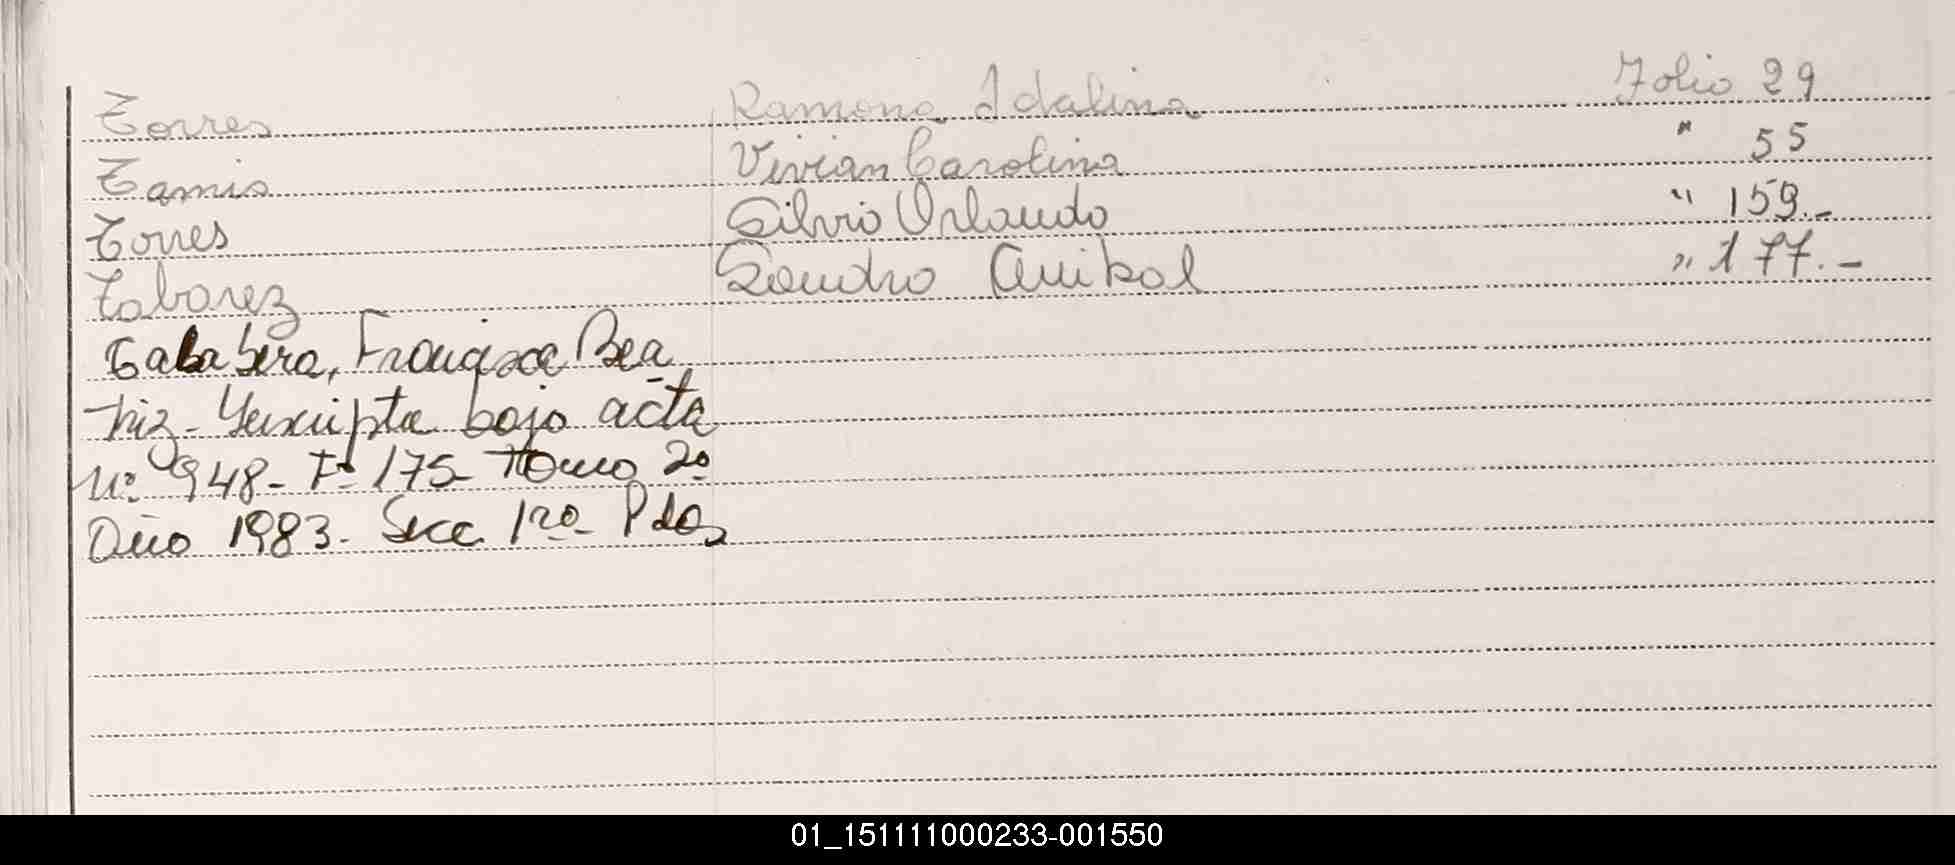 Torres Ramona Idalina Folio 29
Tamis Vivian Carolina " 55
Torres Silvio Orlando " 159.-
Tabarez Sandro Anibal " 177.-
Francisca Bea
triz - Inscripta bajo acta
Nº 948 - Fº 175 - Tomo 2º
Año 1983 - Secc 1ra Pdas
01_151111000233-001550